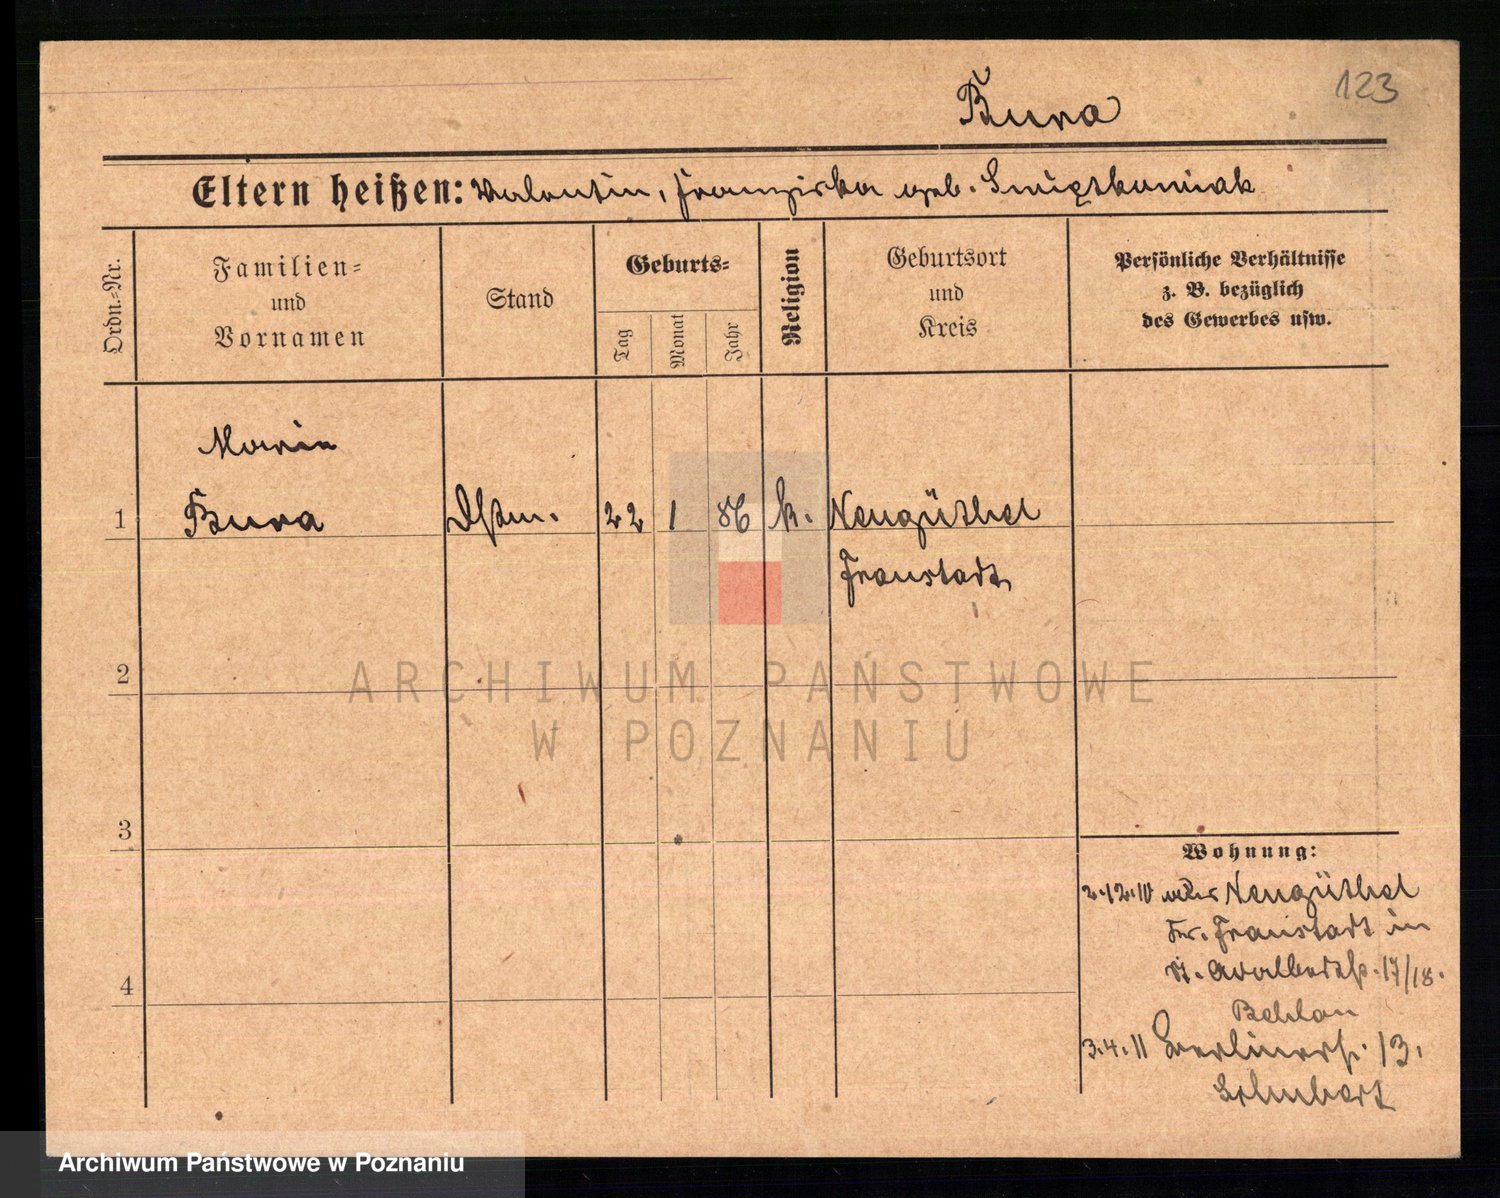 123
Bura
Eltern heißen: Valentin, Franziska geb.
Ordn.-Nr.
Familien-
und
Vornamen
Stand
Geburts-
Tag
Monat
Jahr
Religion
Geburtsort
und
Kreis
Persönliche Verhältnisse
z. B. bezüglich
des Gewerbes usw.
Maria
1 Bura Dstm. 22 1 86 k. Neugüthel
Fraustadt
2
ARCHIWUM PAŃSTWOWE
W POZNANIU
3
4
Wohnung:
2.12.10 Neugüthel
Kr. Fraustadt in
St. Adalbertstr. 17/18.
3.4.11 Berlinerstr. 13.
Schubert
Archiwum Państwowe w Poznaniu